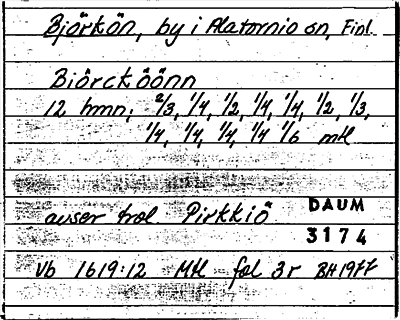 Björkön, by i Alatornio sn, Finl.
Biörcköönn
12 hmn; 2/3, 1/4, 1/2, 1/4, 1/4, 1/2, 1/3,
1/4, 1/4, 1/4, 1/4 1/6 mtl
avser trol Pirkkiö
DAUM
3174
Vb 1619:12 Mtl fol 3r BH1977